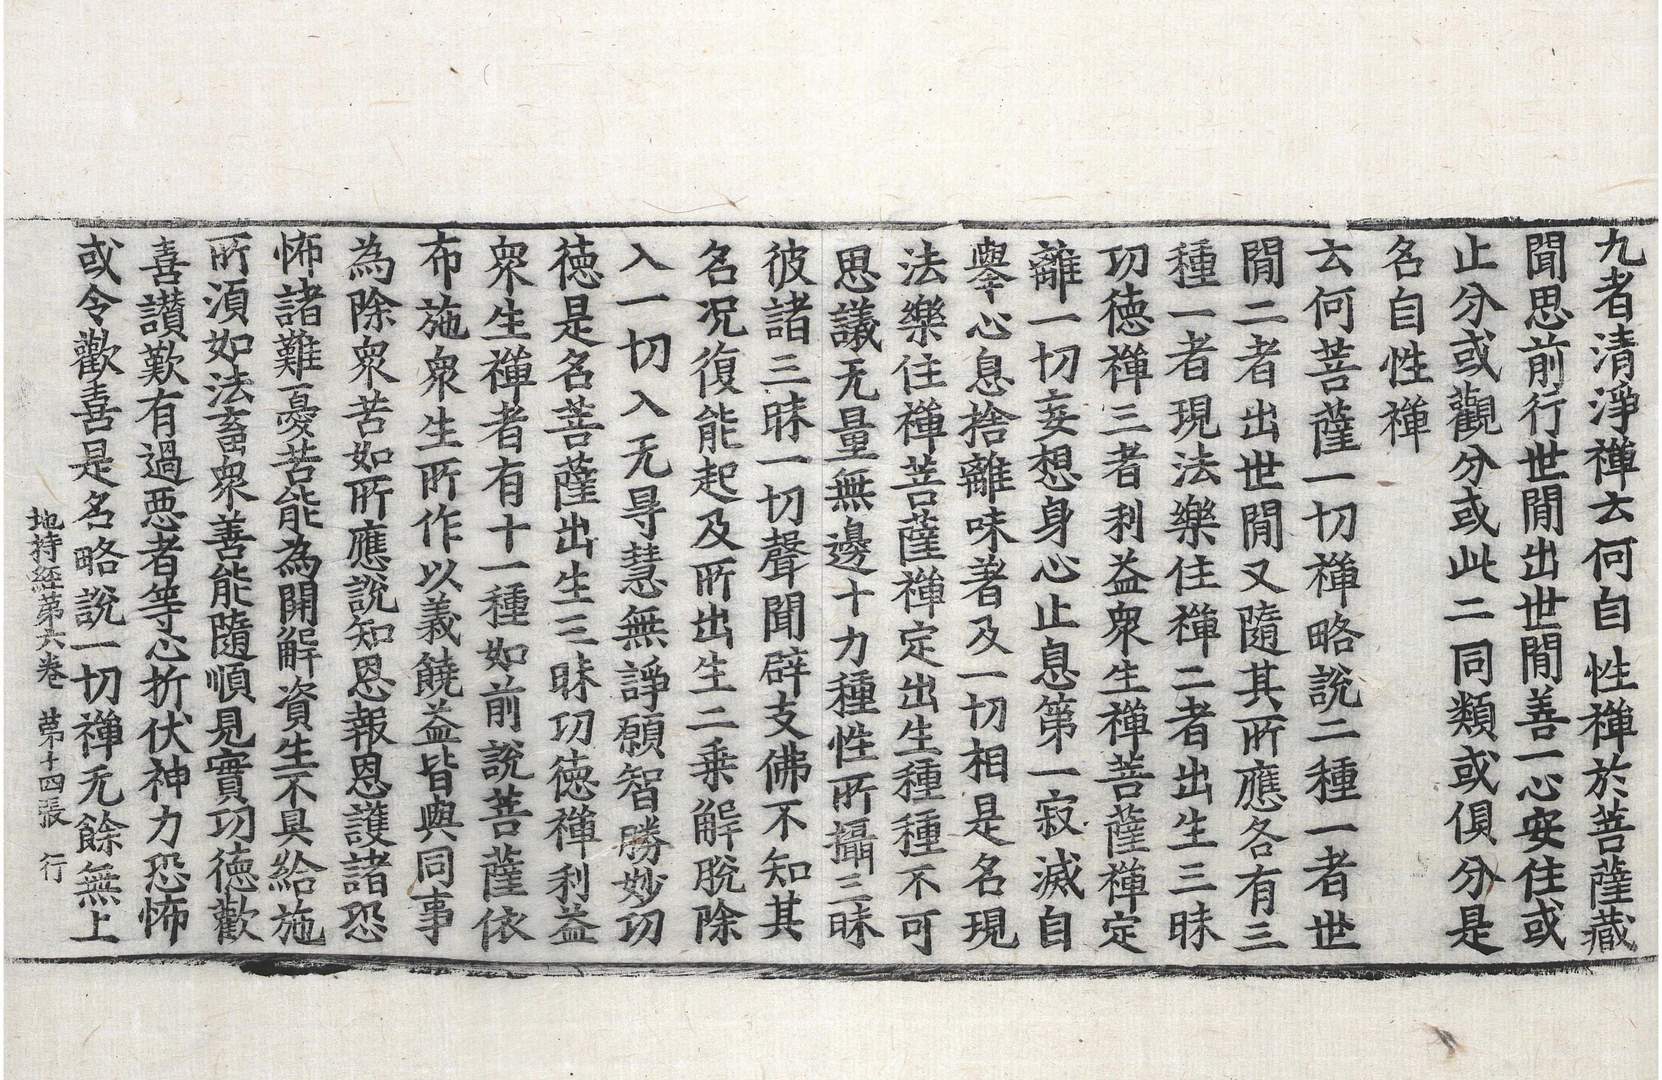 九者清淨禪云何自性禪於菩薩藏
聞思前行世閒出世閒善一心安住或
止分或觀分或此二同類或俱分是
名自性禪
云何菩薩一切禪略說二種一者世
閒二者出世閒又隨其所應各有三
種一者現法樂住禪二者出生三昧
功德禪三者利益衆生禪菩薩禪定
離一切妄想身心止息第一寂滅自
擧心息捨離味著及一切相是名現
法樂住禪菩薩禪定出生種種不可
思議无量無邊十力種性所攝三昧
彼諸三昧一切聲聞辟支佛不知其
名况復能起及所出生二乘解脫除
入一切入无㝵慧無諍願智勝妙功
德是名菩薩出生三昧功德禪利益
衆生禪者有十一種如前說菩薩依
布施衆生所作以義饒益皆與同事
為除衆苦如所應說知恩報恩護諸恐
怖諸難憂苦能為開解資生不具給施
所湏如法畜衆善能隨順見實功德歡
喜讃歎有過惡者等心折伏神力恐怖
或令歡喜是名略說一切禪无餘無上
地持經第六卷 第十四張 行